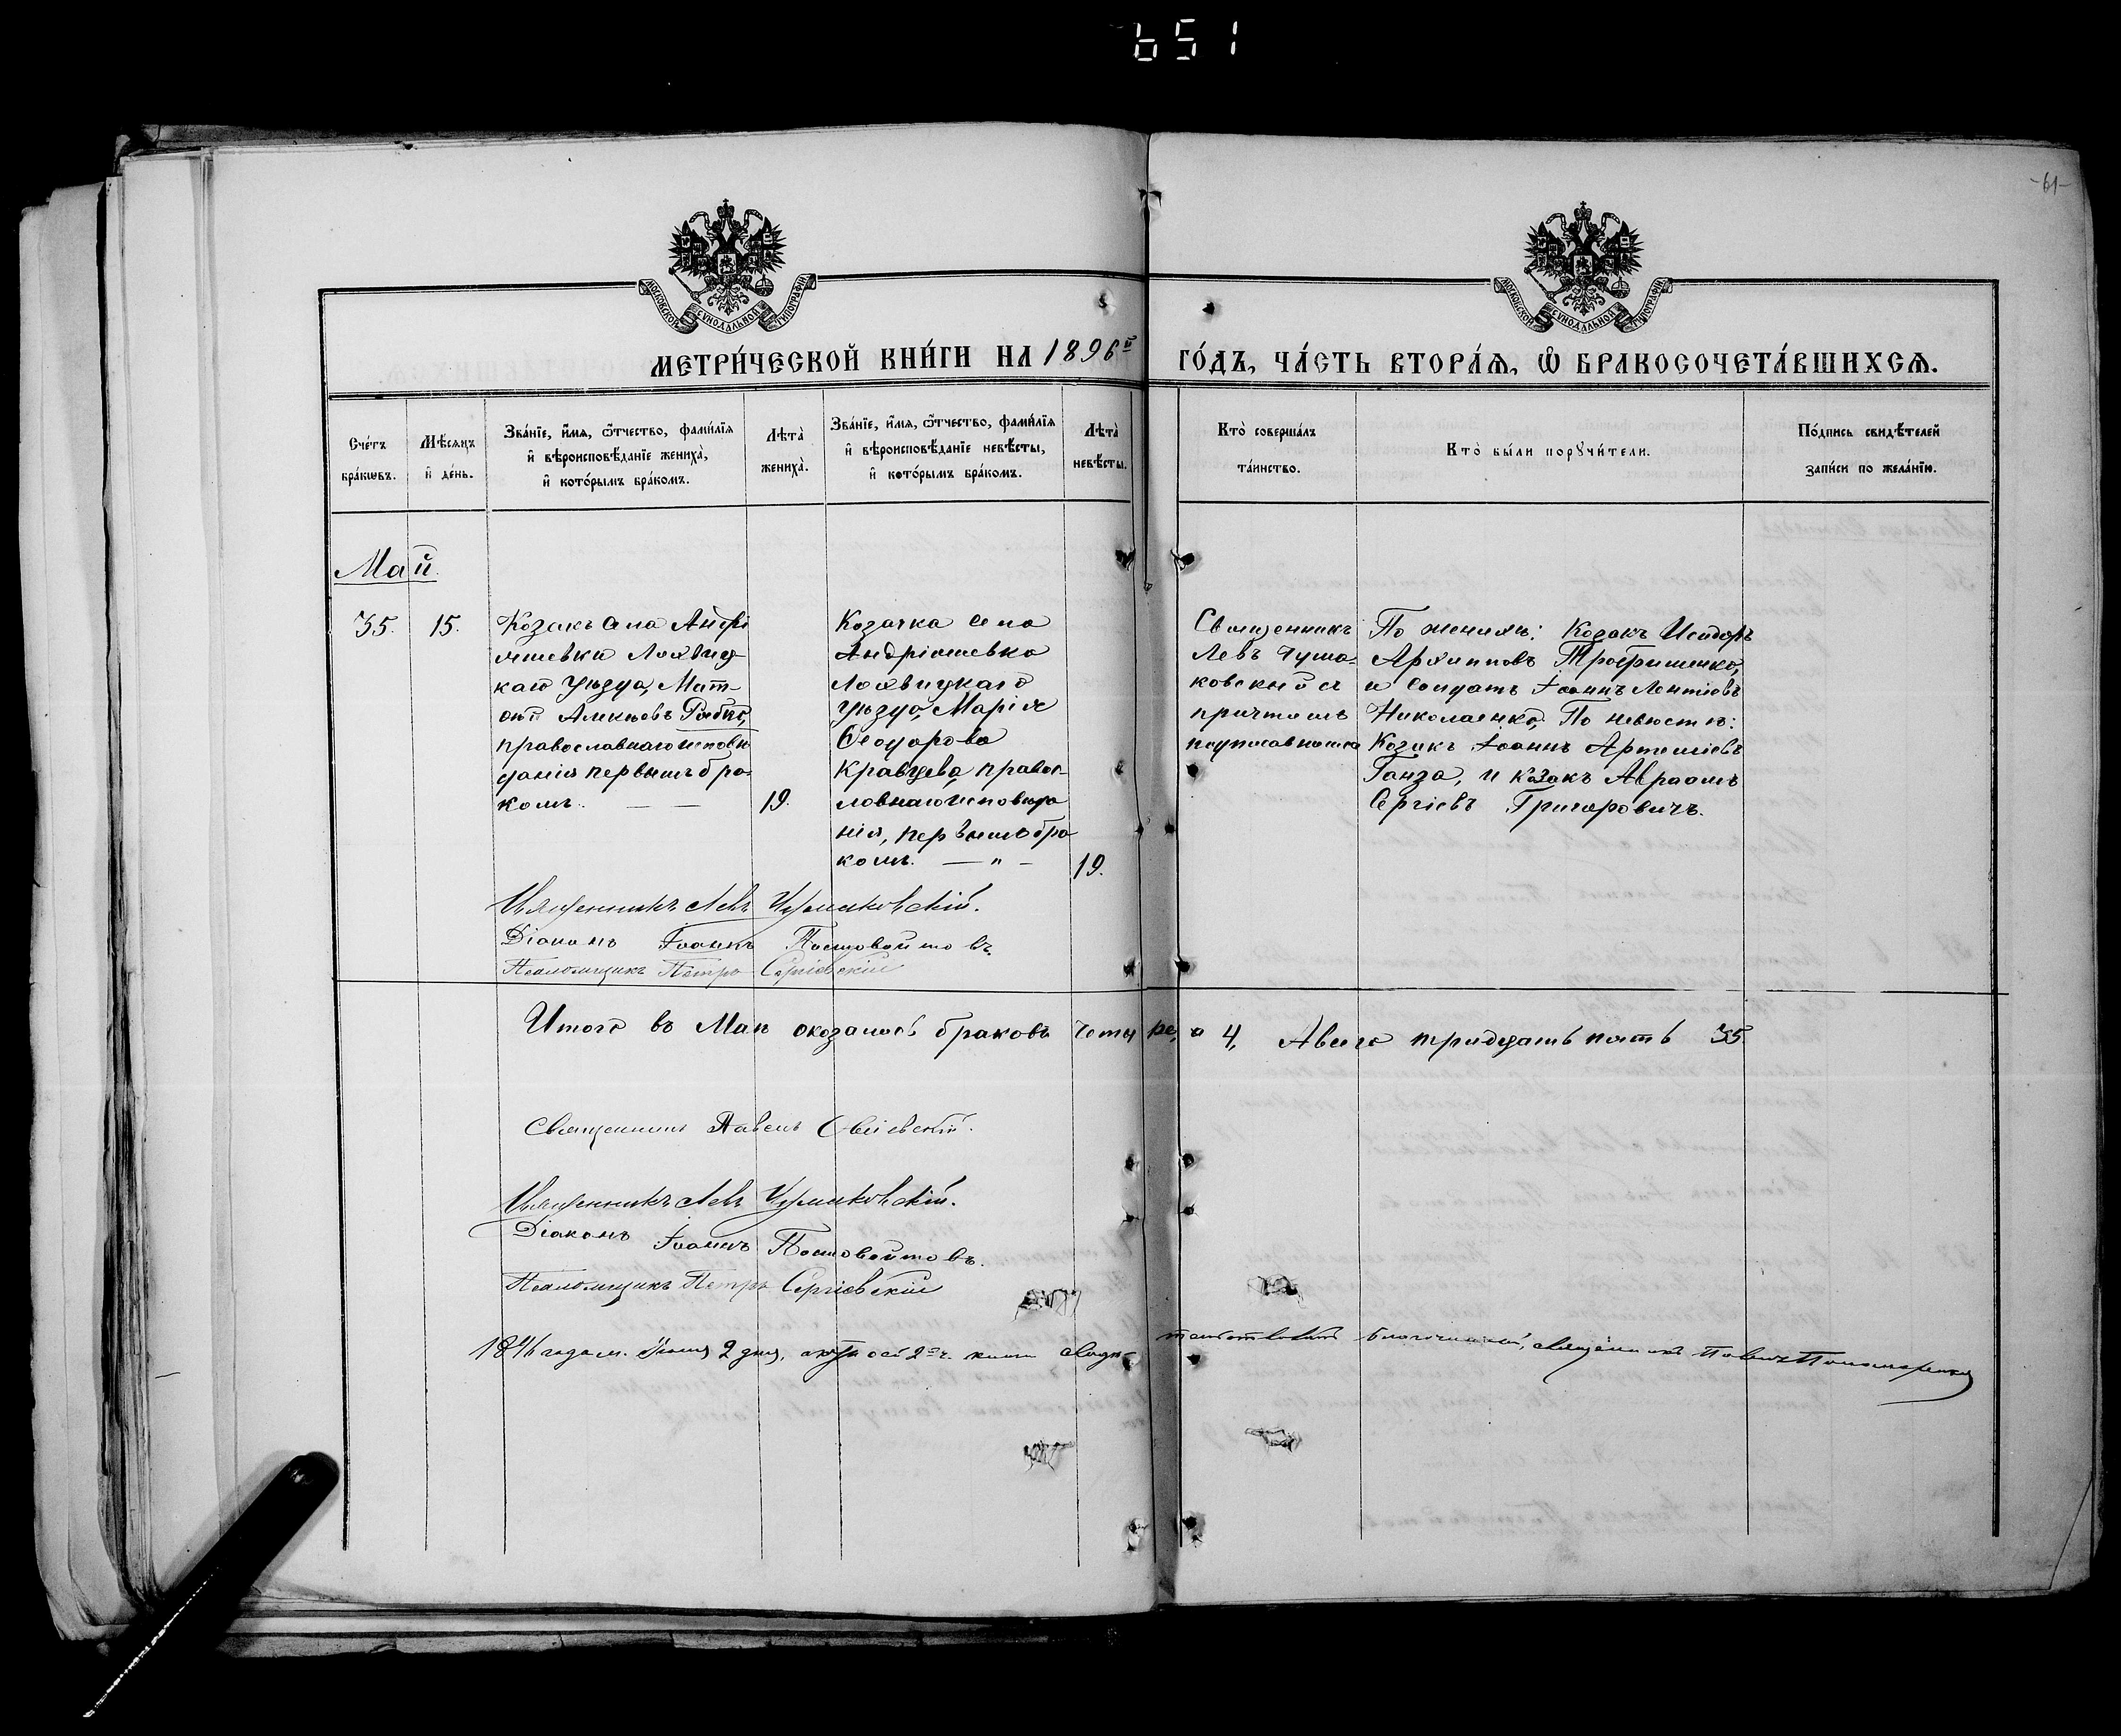 651
-61-
МОСКОВСКОЙ СУНОДАЛЬНОЙ ТИПОГРАФІИ
МОСКОВСКОЙ СУНОДАЛЬНОЙ ТИПОГРАФІИ
МЕТРИ́ЧЕСКОЙ КНИ́ГИ НА 1896й ГО́ДЪ, ЧА́СТЬ ВТОРА́Ѧ, Ѽ БРАКОСОЧЕТА́ВШИХСѦ.
Сче́тъ бра́кѡвъ.
Мѣ́сѧцъ и҆ де́нь.
Зва́нїе, и҆́мѧ, ѻ҆́тчество, фами́лїѧ и҆ вѣроисповѣ́данїе жениха̀, и҆ кото́рымъ бра́комъ.
Лѣта̀ жениха̀.
Зва́нїе, и҆́мѧ, ѻ҆́тчество, фами́лїѧ и҆ вѣроисповѣ́данїе невѣ́сты, и҆ кото́рымъ бра́комъ.
Лѣта̀ невѣ́сты.
Кто̀ соверша́лъ та́инство.
Кто̀ бы́ли порꙋчи́тели.
По́дпись свидѣ́телей за́писи по жела́нїю.
Май.
35. 15.
Козакъ села Андрі
яшевки Лохвиц-
каго уѣзда, Мат-
ѳей Алексѣевъ
православнаго исповѣ
данія первымъ бра-
комъ. — — 19.
Козачка села
Андріяшевки
Лохвицкаго
уѣзда, Марія
Ѳеодорова
Кравцева, правос-
лавнаго исповѣда
нія, первымъ бра
комъ. — „ — 19.
Священникъ
Левъ Чума-
ковскій съ
причтомъ
подписавшимся
По женихѣ: Козакъ Исидоръ
Архиповъ Трофименко,
и Солдатъ Іоаннъ Леонтіевъ
Николаенко, По невѣстѣ:
Козакъ Іоаннъ Артеміевъ
Ганза, и козакъ Авраамъ
Сергіевъ Григоровичъ.
Священникъ Левъ Чумаковскій.
Діаконъ Іоаннъ Постовойтовъ.
Псаломщикъ Петръ Сергіевскій
Итого въ Маѣ оказалось браковъ четыре, 4, А всего тридцать пять 35
Священникъ Павелъ
Священникъ Левъ Чумаковскій.
Діаконъ Іоаннъ Постовойтовъ.
Псаломщикъ Петръ Сергіевскій
1896 года м. Іюня 2 дня, книги свидѣтельствовалъ благочинный, священникъ Павелъ Пономаренко